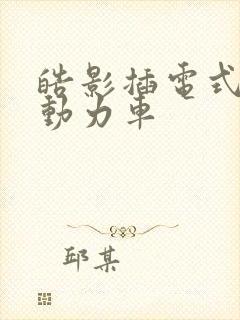 皓影插電式
動力車
邱某